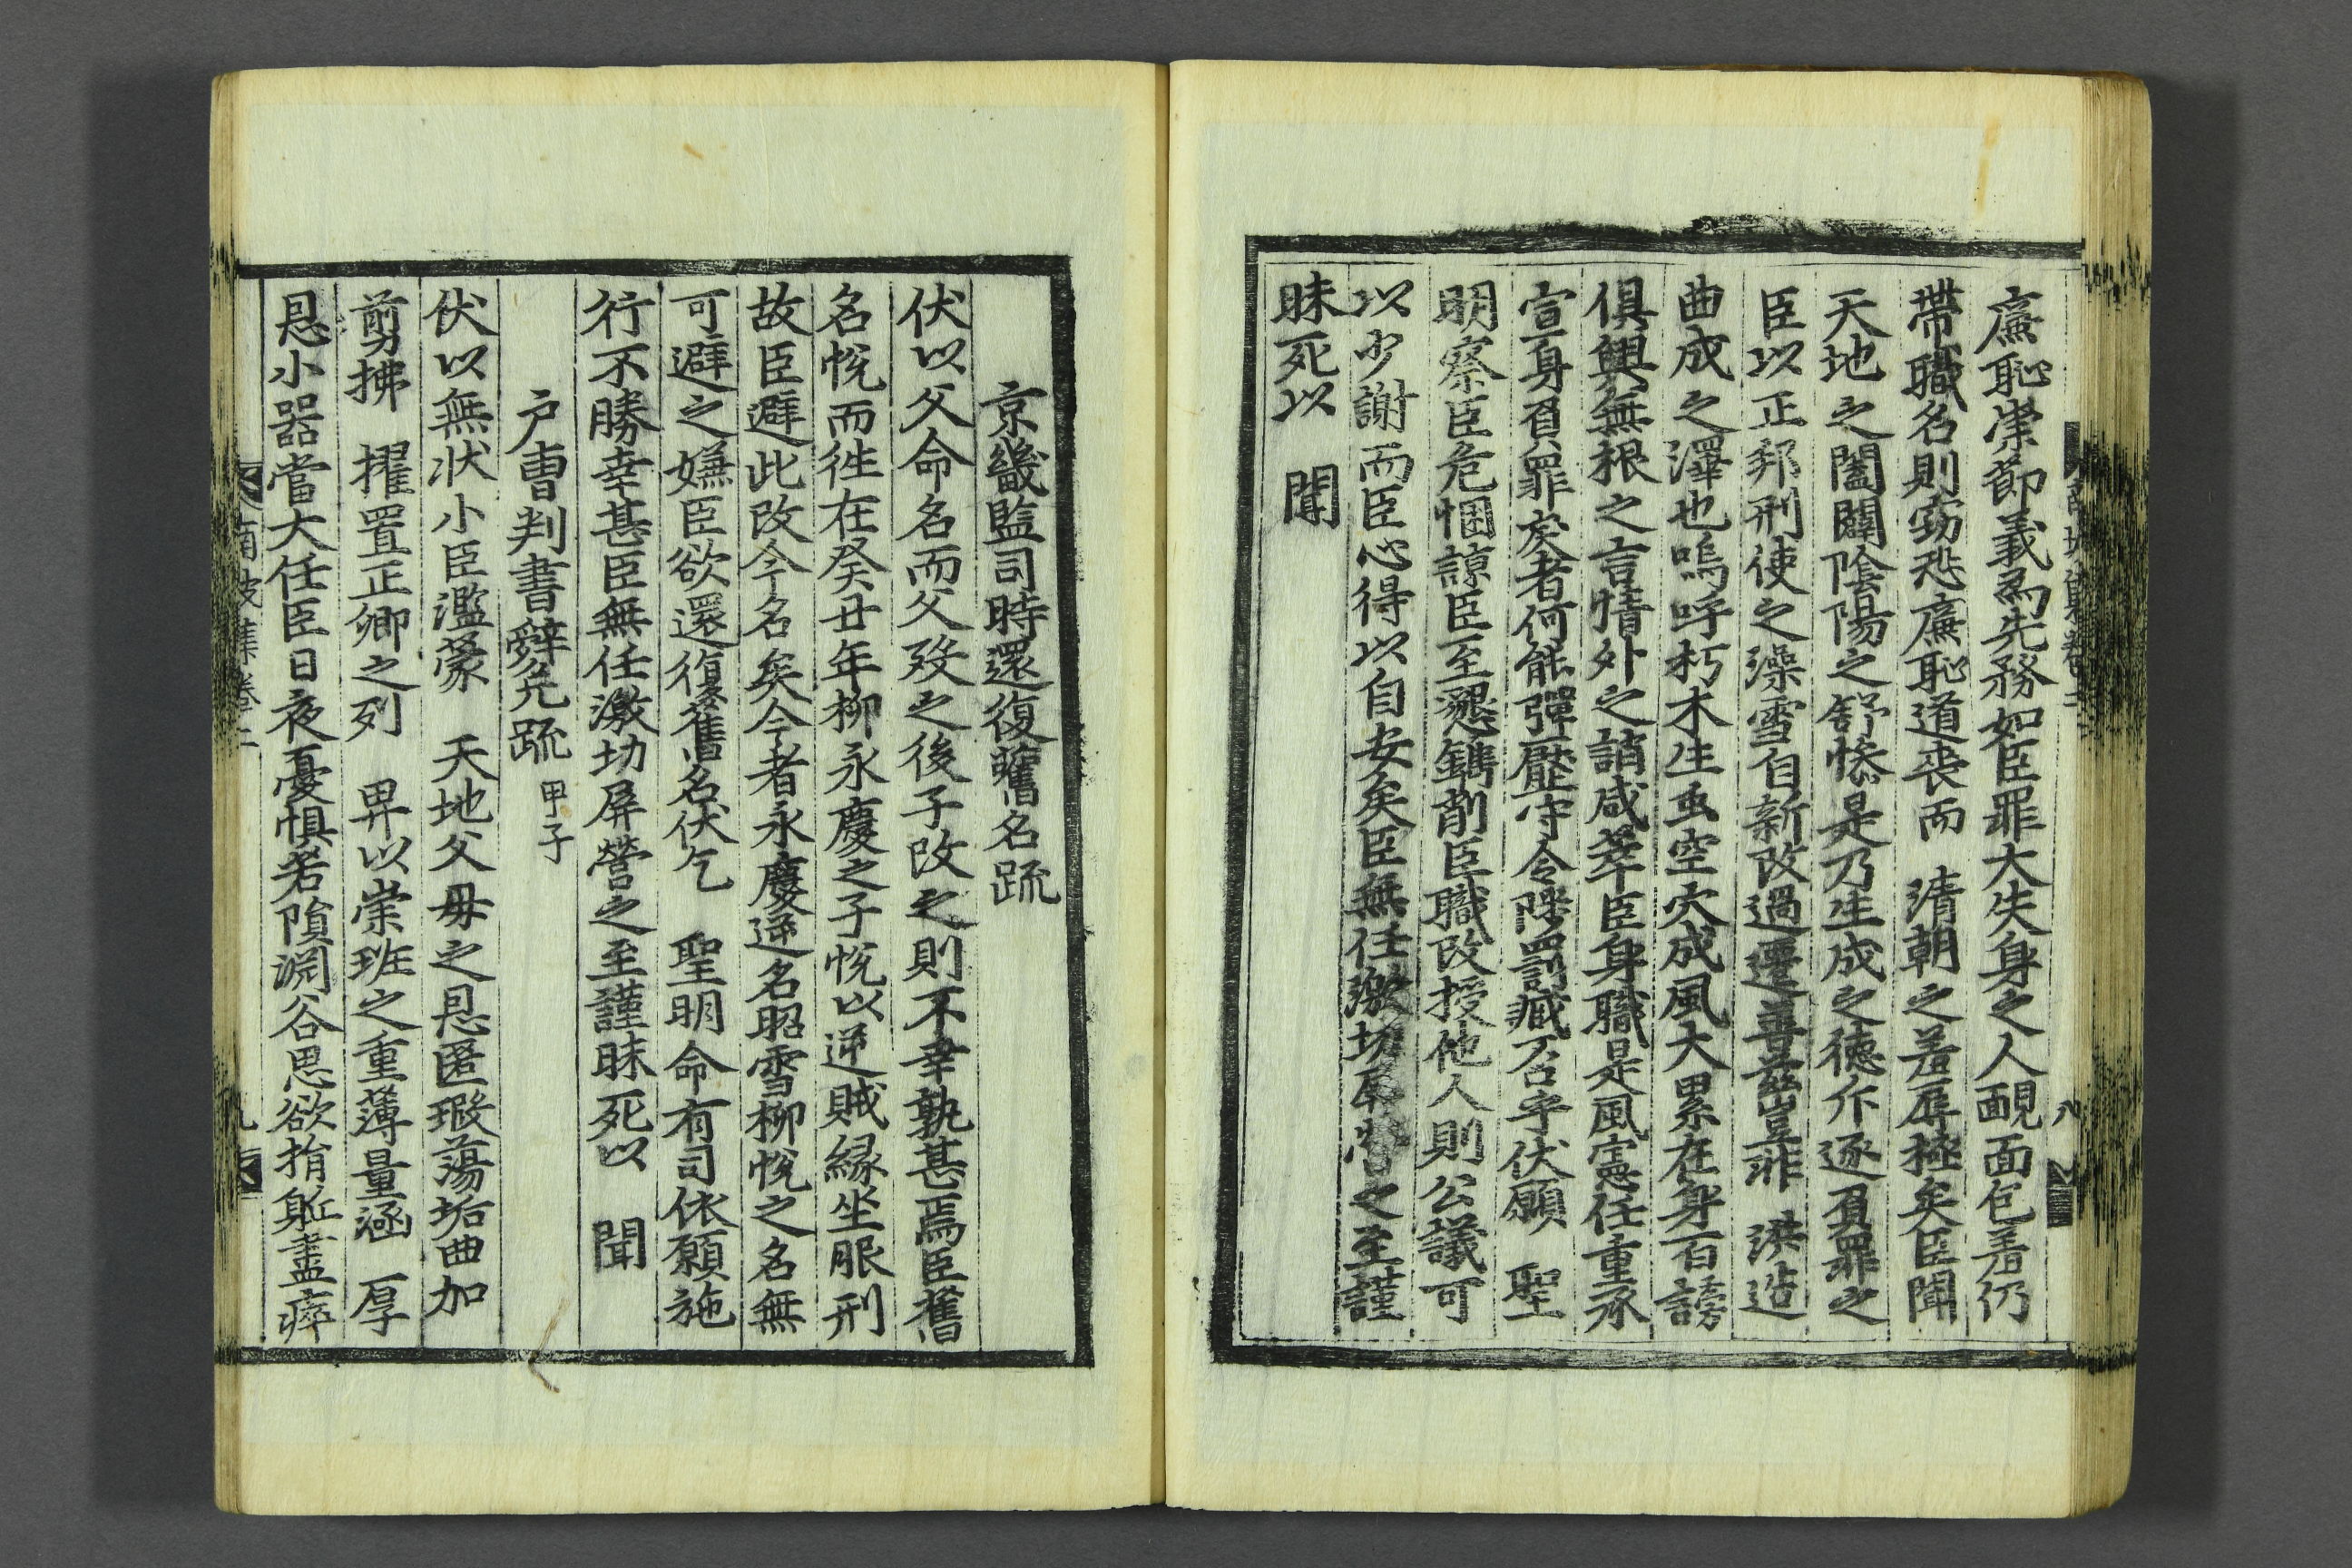 廉恥崇節義爲先務如臣罪大失身之人靦面包羞仍
帶職名則竊恐廉恥道喪而 淸朝之羞辱極矣臣聞
天地之闔闢陰陽之舒慘是乃生成之德斥逐負罪之
臣以正邦刑使之澡雪自新改過遷善玆豈非 洪造
曲成之澤也嗚呼朽木生虫空穴成風大累在身百謗
俱興無根之言情外之誚咸萃臣身職是風憲任重承
宣身負罪戾者何能彈壓守令陟罰臧否乎伏願 聖
明察臣危悃諒臣至懇鐫削臣職改授他人則公議可
以少謝而臣心得以自安矣臣無任激切屛營之至謹
昧死以 聞
八
京畿監司時還復舊名疏
伏以父命名而父歿之後子改之則不幸孰甚焉臣舊
名悅而徃在癸丑年柳永慶之子悅以逆賊緣坐服刑
故臣避此改今名矣今者永慶逆名昭雪柳悅之名無
可避之嫌臣欲還復舊名伏乞 聖明命有司依願施
行不勝幸甚臣無任激切屛營之至謹昧死以 聞
户曺判書辭免疏 甲子
伏以無狀小臣濫蒙 天地父母之恩匿瑕蕩垢曲加
剪拂 擢置正卿之列 畀以崇班之重薄量涵 厚
恩小器當大任臣日夜憂惧若隕淵谷思欲捐軀盡瘁
南坡集卷二